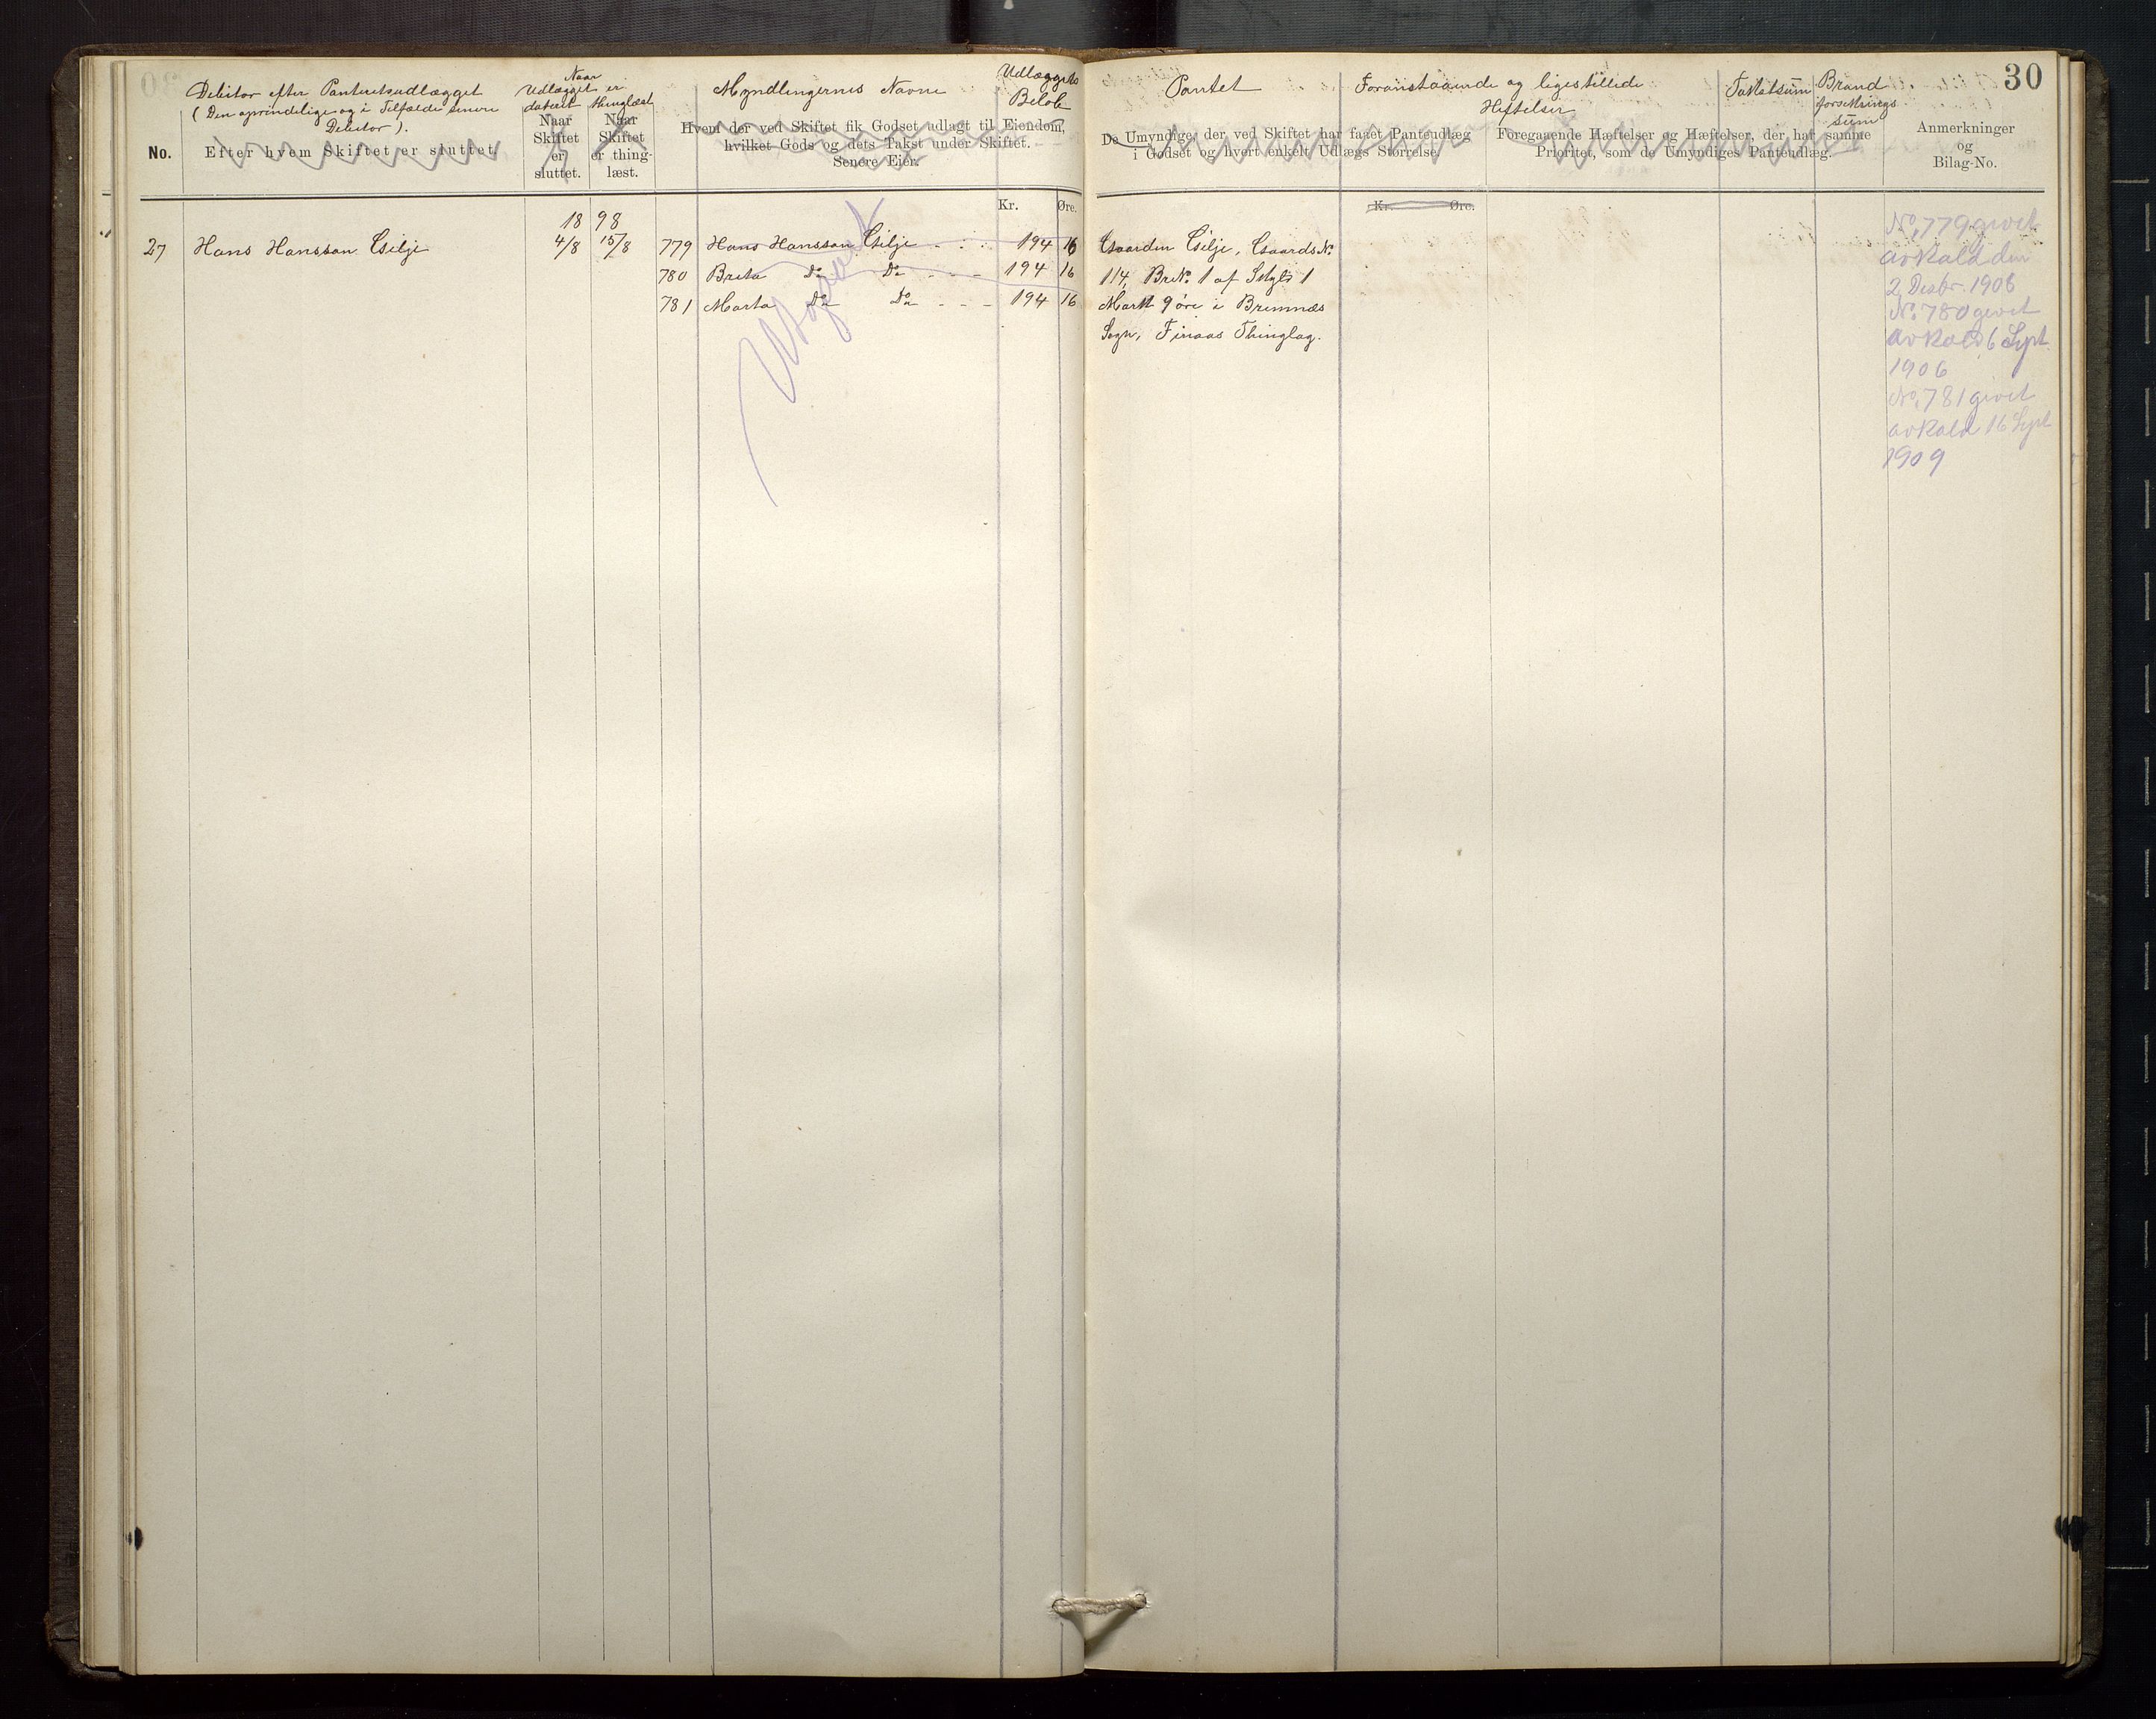 30
Debitor efter Panteretsudlægget
(Den oprindelige og i Tilfælde senere
Debitor).
No.
Efter hvem Skiftet er sluttet
Naar
Udlægget er
dateret thinglæst
Naar
Skiftet
er
sluttet.
Naar
Skiftet
er thing-
læst.
Myndlingernes Navne
Hvem der ved Skiftet fik Godset udlagt til Eiendom,
hvilket Gods og dets Takst under Skiftet.
Senere Eier.
Udlæggets
Beløb
Kr. Øre.
18 98
27 Hans Hansson Gilje 4/8 15/8 779 Hans Hansson Gilje - - - 194 16
780 Brita Do Do - - - 194 16
781 Marta Do Do - - - 194 16
Pantet
De Umyndige, der ved Skiftet har faaet Panteudlæg
i Godset og hvert enkelt Udlægs Størrelse.
Foranstaaende og ligestillede
Heftelser
Foregaaende Hæftelser og Hæftelser, der har samme
Prioritet, som de Umyndiges Panteudlæg.
Taxtsum
Brand
forsikrings
sum
Anmerkninger
og
Bilag-No.
30
Kr. Øre.
Gaarden Gilje, Gaards No
114, Br.No. 1 af Skyld 1
Mark 9 øre i Bremnæs
Sogn, Finaas Thinglag.
No. 779 givet
avkald den
2 Desbr. 1906
No. 780 givet
avkald 6 Sept
1906
No. 781 givet
avkald 16 Sept
1909